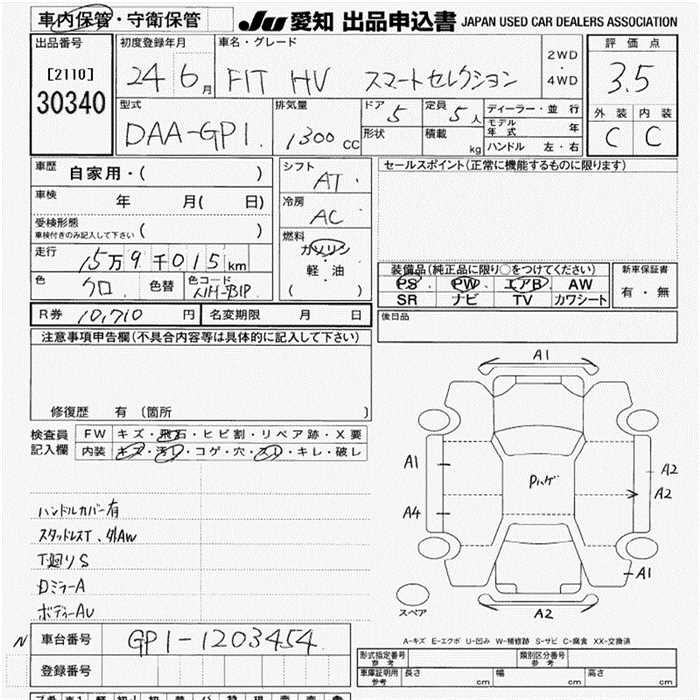 車内保管・守衛保管 JU 愛知 出品申込書 JAPAN USED CAR DEALERS ASSOCIATION
出品番号
[2110]
30340
初度登録年月
24 6月
車名・グレード
FIT HV スマートセレクション
2WD
・
4WD
評価点
3.5
外装 内装
C C
型式
DAA-GP1
排気量
1300 CC
ドア
5
定員
5人
形状
積載
kg
ディーラー・並行
モデル年式 年
ハンドル 左・右
車歴
自家用・( )
車検
年 月( 日)
受検形態
車検付きのみ記入して下さい ( )
走行
15万9千015km
色
クロ
色替
色コード
NH-731P
シフト
AT
冷房
AC
燃料
ガソリン
・
軽油
( )
セールスポイント(正常に機能するものに限ります)
装備品(純正品に限り○をつけてください)
PS PW エアB AW
SR ナビ TV カワシート
新車保証書
有・無
R券 10,710 円 名変期限 月 日
後日品
注意事項申告欄(不具合内容等は具体的に記入して下さい)
修復歴 有 〔箇所 〕
検査員
記入欄
FW キズ・飛石・ヒビ割・リペア跡・X要
内装 キズ・汚れ・コゲ・穴・スレ・キレ・破レ
ハンドルカバー有
スタッドレスT、外AW
T廻りS
Dミラ-A
ボディーAU
A1
A1
A4
Pハゲ
A2
A2
A1
A2
スペア
A-キズ E-エクボ U-凹み W-補修跡 S-サビ C-腐食 XX-交換済
N 車台番号 GP1-1203454
登録番号
形式指定番号
参考
類別区分番号
参考
車庫証明用
参考
長さ cm 幅 cm 高さ cm